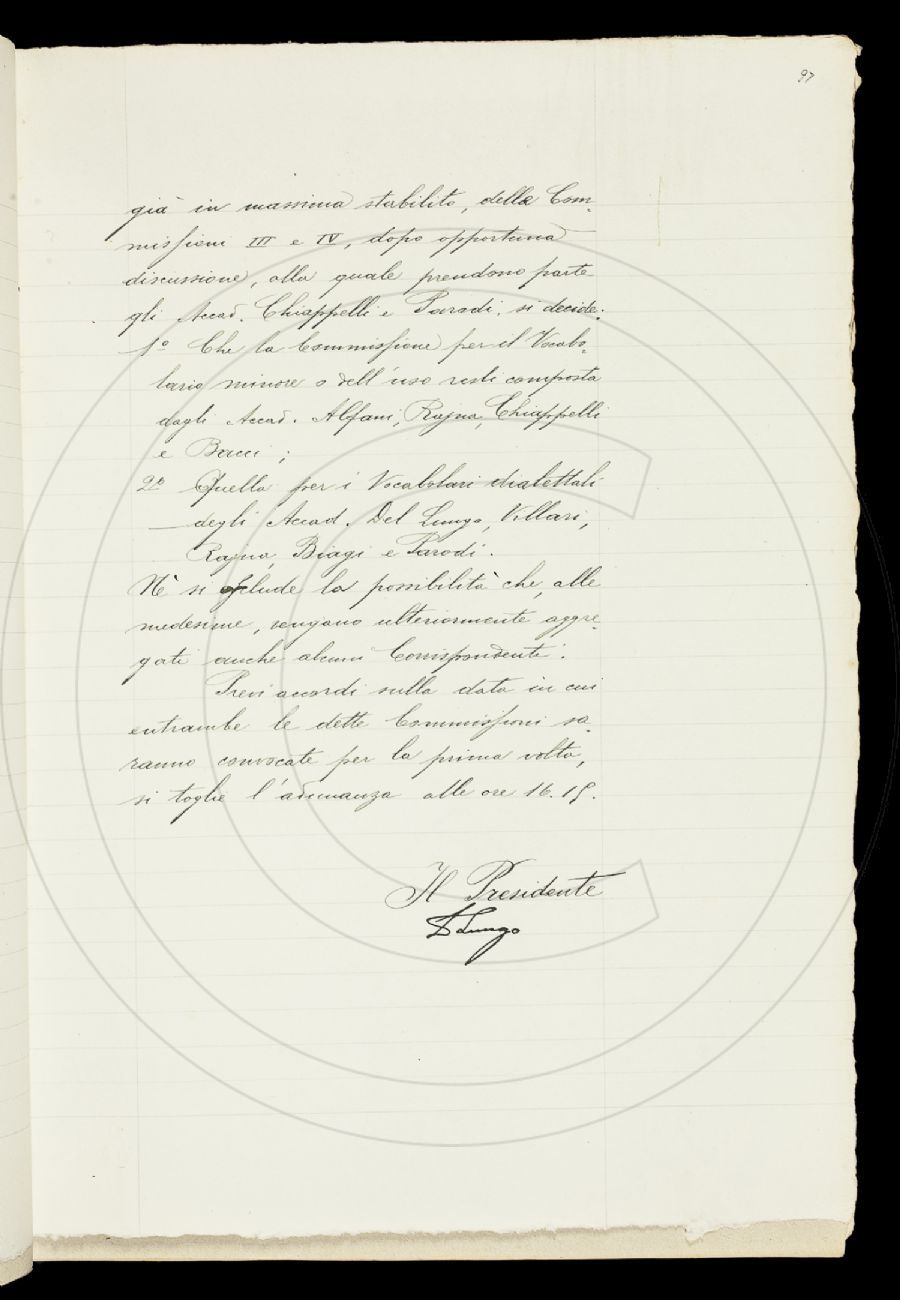 97
già in massima stabilito, delle Com-
missioni III e IV, dopo opportuna
discussione, alla quale prendono parte
gli Accad. Chiappelli e Parodi, si decide:
1º Che la Commissione per il Vocabo-
lario minore o dell'uso resti composta
dagli Accad. Alfani, Rajna, Chiappelli
e Bacci;
2º Quella per i Vocabolari dialettali
degli Accad. Del Lungo, Villari,
Rajna, Biagi e Parodi.
Nè si esclude la possibilità che, alle
medesime, vengano ulteriormente aggre-
gati anche alcuni Corrispondenti.
Previ accordi sulla data in cui
entrambe le dette Commissioni sa-
ranno convocate per la prima volta,
si toglie l'adunanza alle ore 16.15.
Il Presidente
DLungo